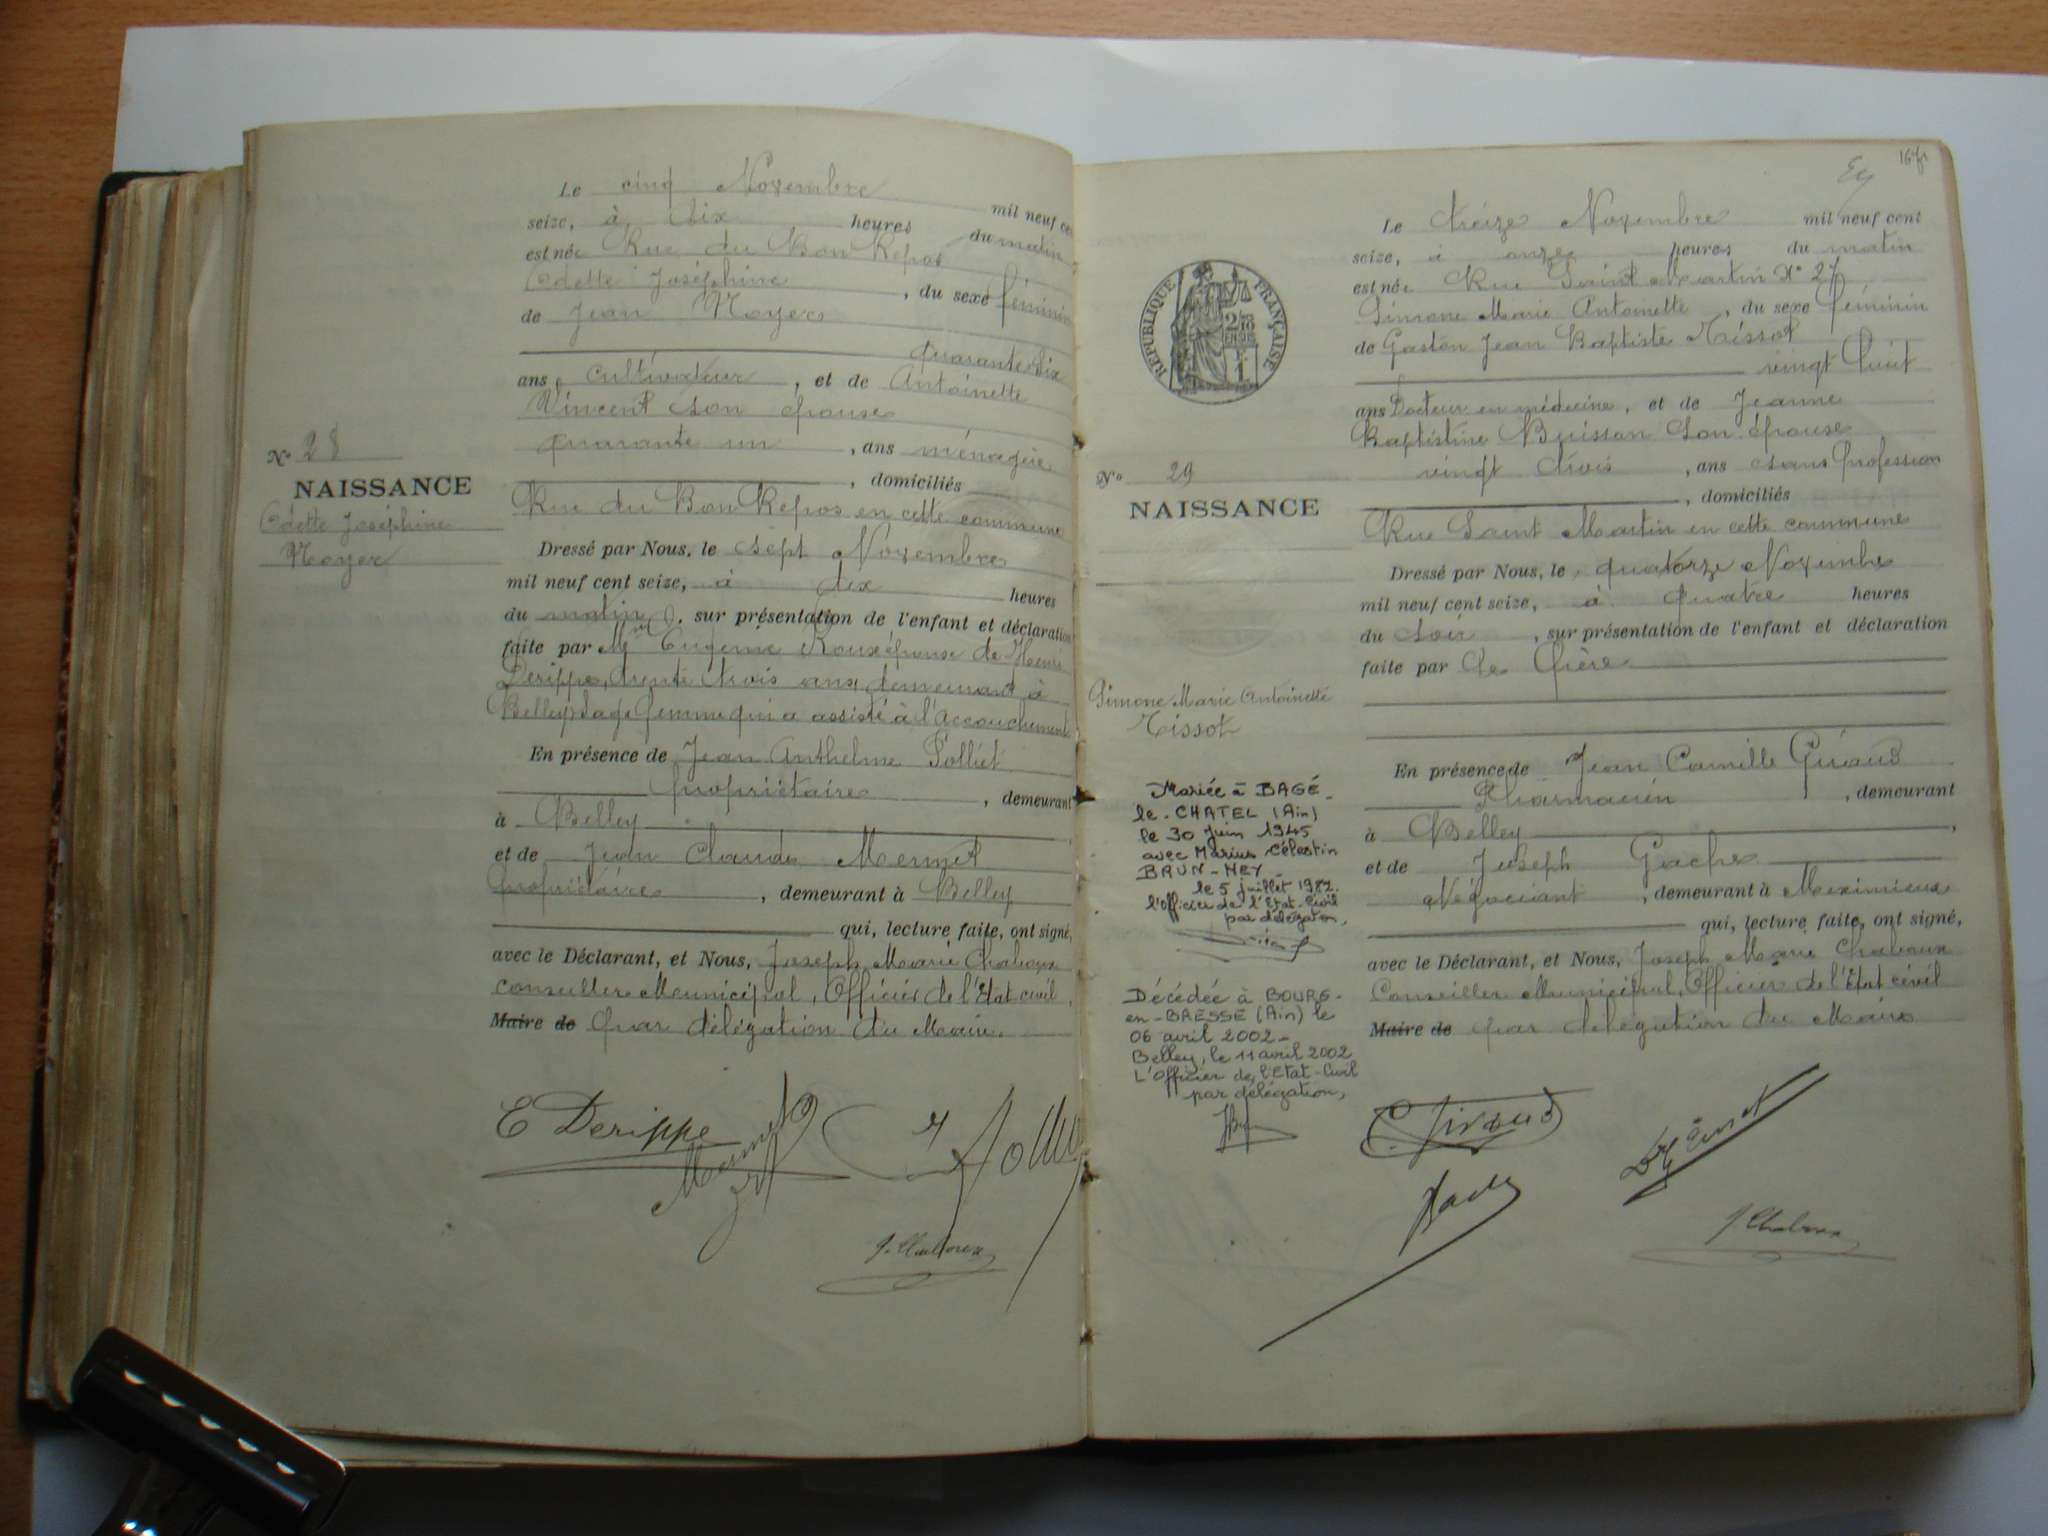 Le cinq Novembre mil neuf ce
seize, à dix heures du matin
est née Rue du Bon Repos
Odette Joséphine, du sexe féminin
de Jean Noyer
quarante six
ans, cultivateur, et de Antoinette
Vincent son épouse
quarante un, ans ménagère
, domiciliés
Rue du Bon Repos en cette commune
Nº 28
NAISSANCE
Odette Joséphine
Noyer
Dressé par Nous, le sept Novembre
mil neuf cent seize, à dix heures
du matin, sur présentation de l'enfant et déclaration
faite par Me Eugénie Roux épouse de Henri
Derippe, trente trois ans, demeurant à
Belley, sage femme qui a assisté à l'accouchement
En présence de Jean Anthelme Polliet
propriétaire, demeurant
à Belley
et de Jean Claude Mermet
propriétaire, demeurant à Belley
qui, lecture faite, ont signé,
avec le Déclarant, et Nous, Joseph Marie Chaboux
Conseiller Municipal, Officier de l'Etat civil,
Maire de par délégation du Maire.
E Derippe
Mermet
J. Chaboux
16 fr
Le treize Novembre mil neuf cent
seize, à onze heures du matin
est née Rue Saint Martin Nº 27
Simone Marie Antoinette, du sexe féminin
de Gaston Jean Baptiste Tissot
vingt huit
ans Docteur en médecine, et de Jeanne
Baptistine Buisson son épouse
vingt trois, ans sans profession
, domiciliés
Rue Saint Martin en cette commune
RÉPUBLIQUE FRANÇAISE
Nº 29
NAISSANCE
Simone Marie Antoinette
Tissot
Mariée à BAGÉ-
le-CHATEL (Ain)
le 30 juin 1945
avec Marius Célestin
BRUN-NEY-
le 5 juillet 1982.
l'officier de l'Etat-Civil
par délégation,
Décédée à BOURG-
en-BRESSE (Ain) le
06 avril 2002-
Belley, le 11 avril 2002
L'Officier de l'Etat-Civil
par délégation,
Dressé par Nous, le quatorze Novembre
mil neuf cent seize, à quatre heures
du soir, sur présentation de l'enfant et déclaration
faite par le père
En présence de Jean Camille Giraud
Pharmacien, demeurant
à Belley,
et de Joseph Gache
Négociant, demeurant à Meximieux
qui, lecture faite, ont signé,
avec le Déclarant, et Nous, Joseph Marie Chaboux
Conseiller Municipal, Officier de l'Etat civil
Maire de par délégation du Maire
C. Giraud
J Chaboux